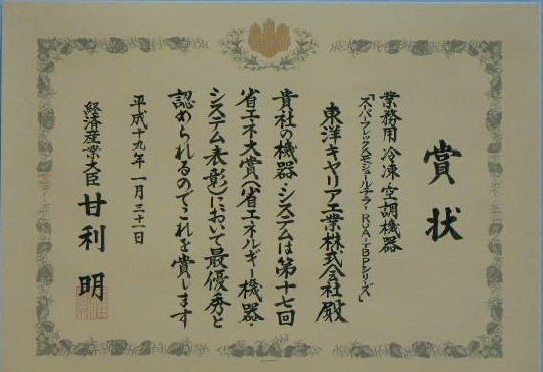 賞状
業務用冷凍空調機器
「スーパーフレックスモジュールチラー RUA-TBPシリーズ」
東洋キヤリア工業株式会社殿
貴社の機器・システムは第十七回
省エネ大賞(省エネルギー機器・
システム表彰)において最優秀と
認められるのでこれを賞します
平成十九年一月三十一日
経済産業大臣 甘利明